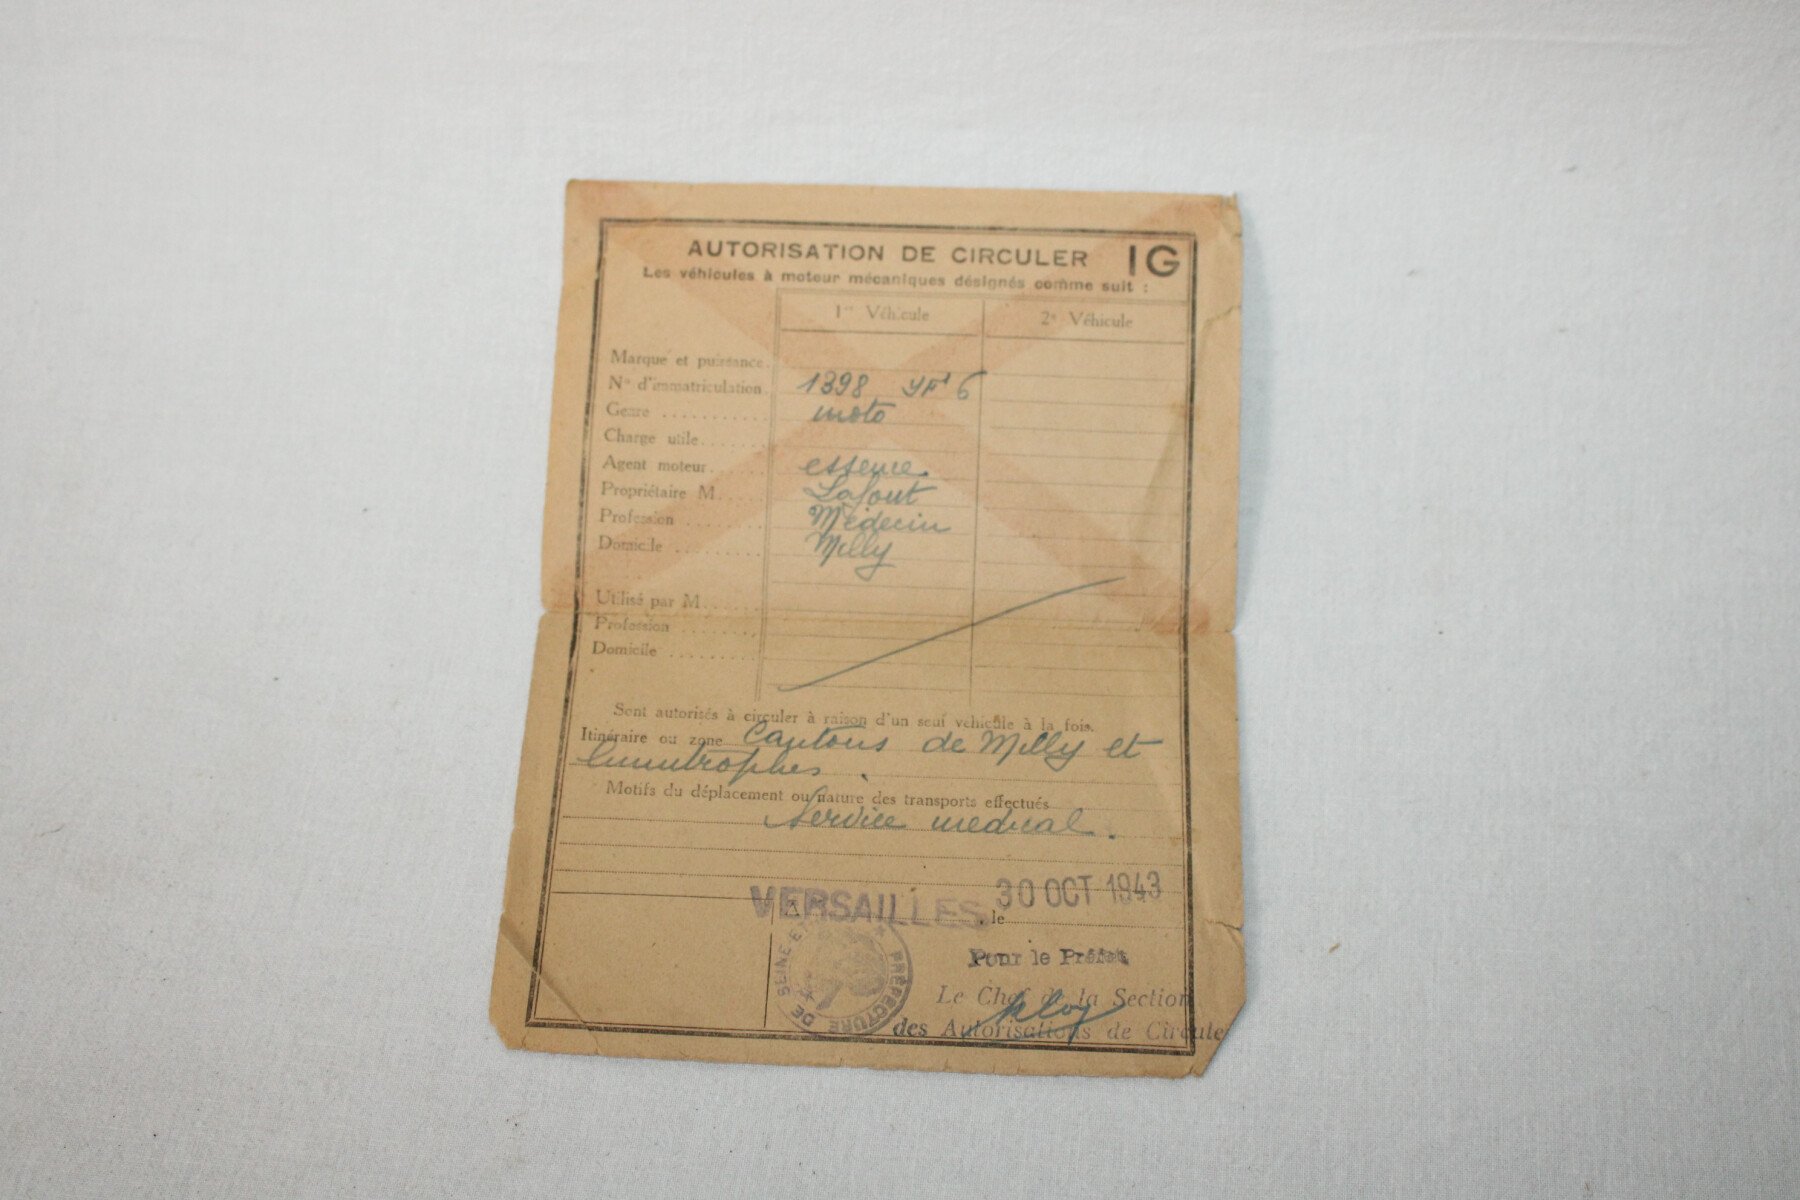 AUTORISATION DE CIRCULER IG
Les véhicules à moteur mécaniques désignés comme suit :
1er Véhicule 2e Véhicule
Marque et puissance.
No d'immatriculation. 1398 YF 6
Genre ........... moto
Charge utile.......
Agent moteur...... essence.
Propriétaire M..... Lafont
Profession ........ Médecin
Domicile ......... Milly
Utilisé par M......
Profession ........
Domicile .........
Sont autorisés à circuler à raison d'un seul véhicule à la fois.
Itinéraire ou zone Cantons de Milly et
limitrophes.
Motifs du déplacement ou nature des transports effectués
Service medical.
A VERSAILLES, le 30 OCT 1943
PRÉFECTURE DE SEINE ET
Pour le Préfet
Le Chef de la Section
des Autorisations de Circule